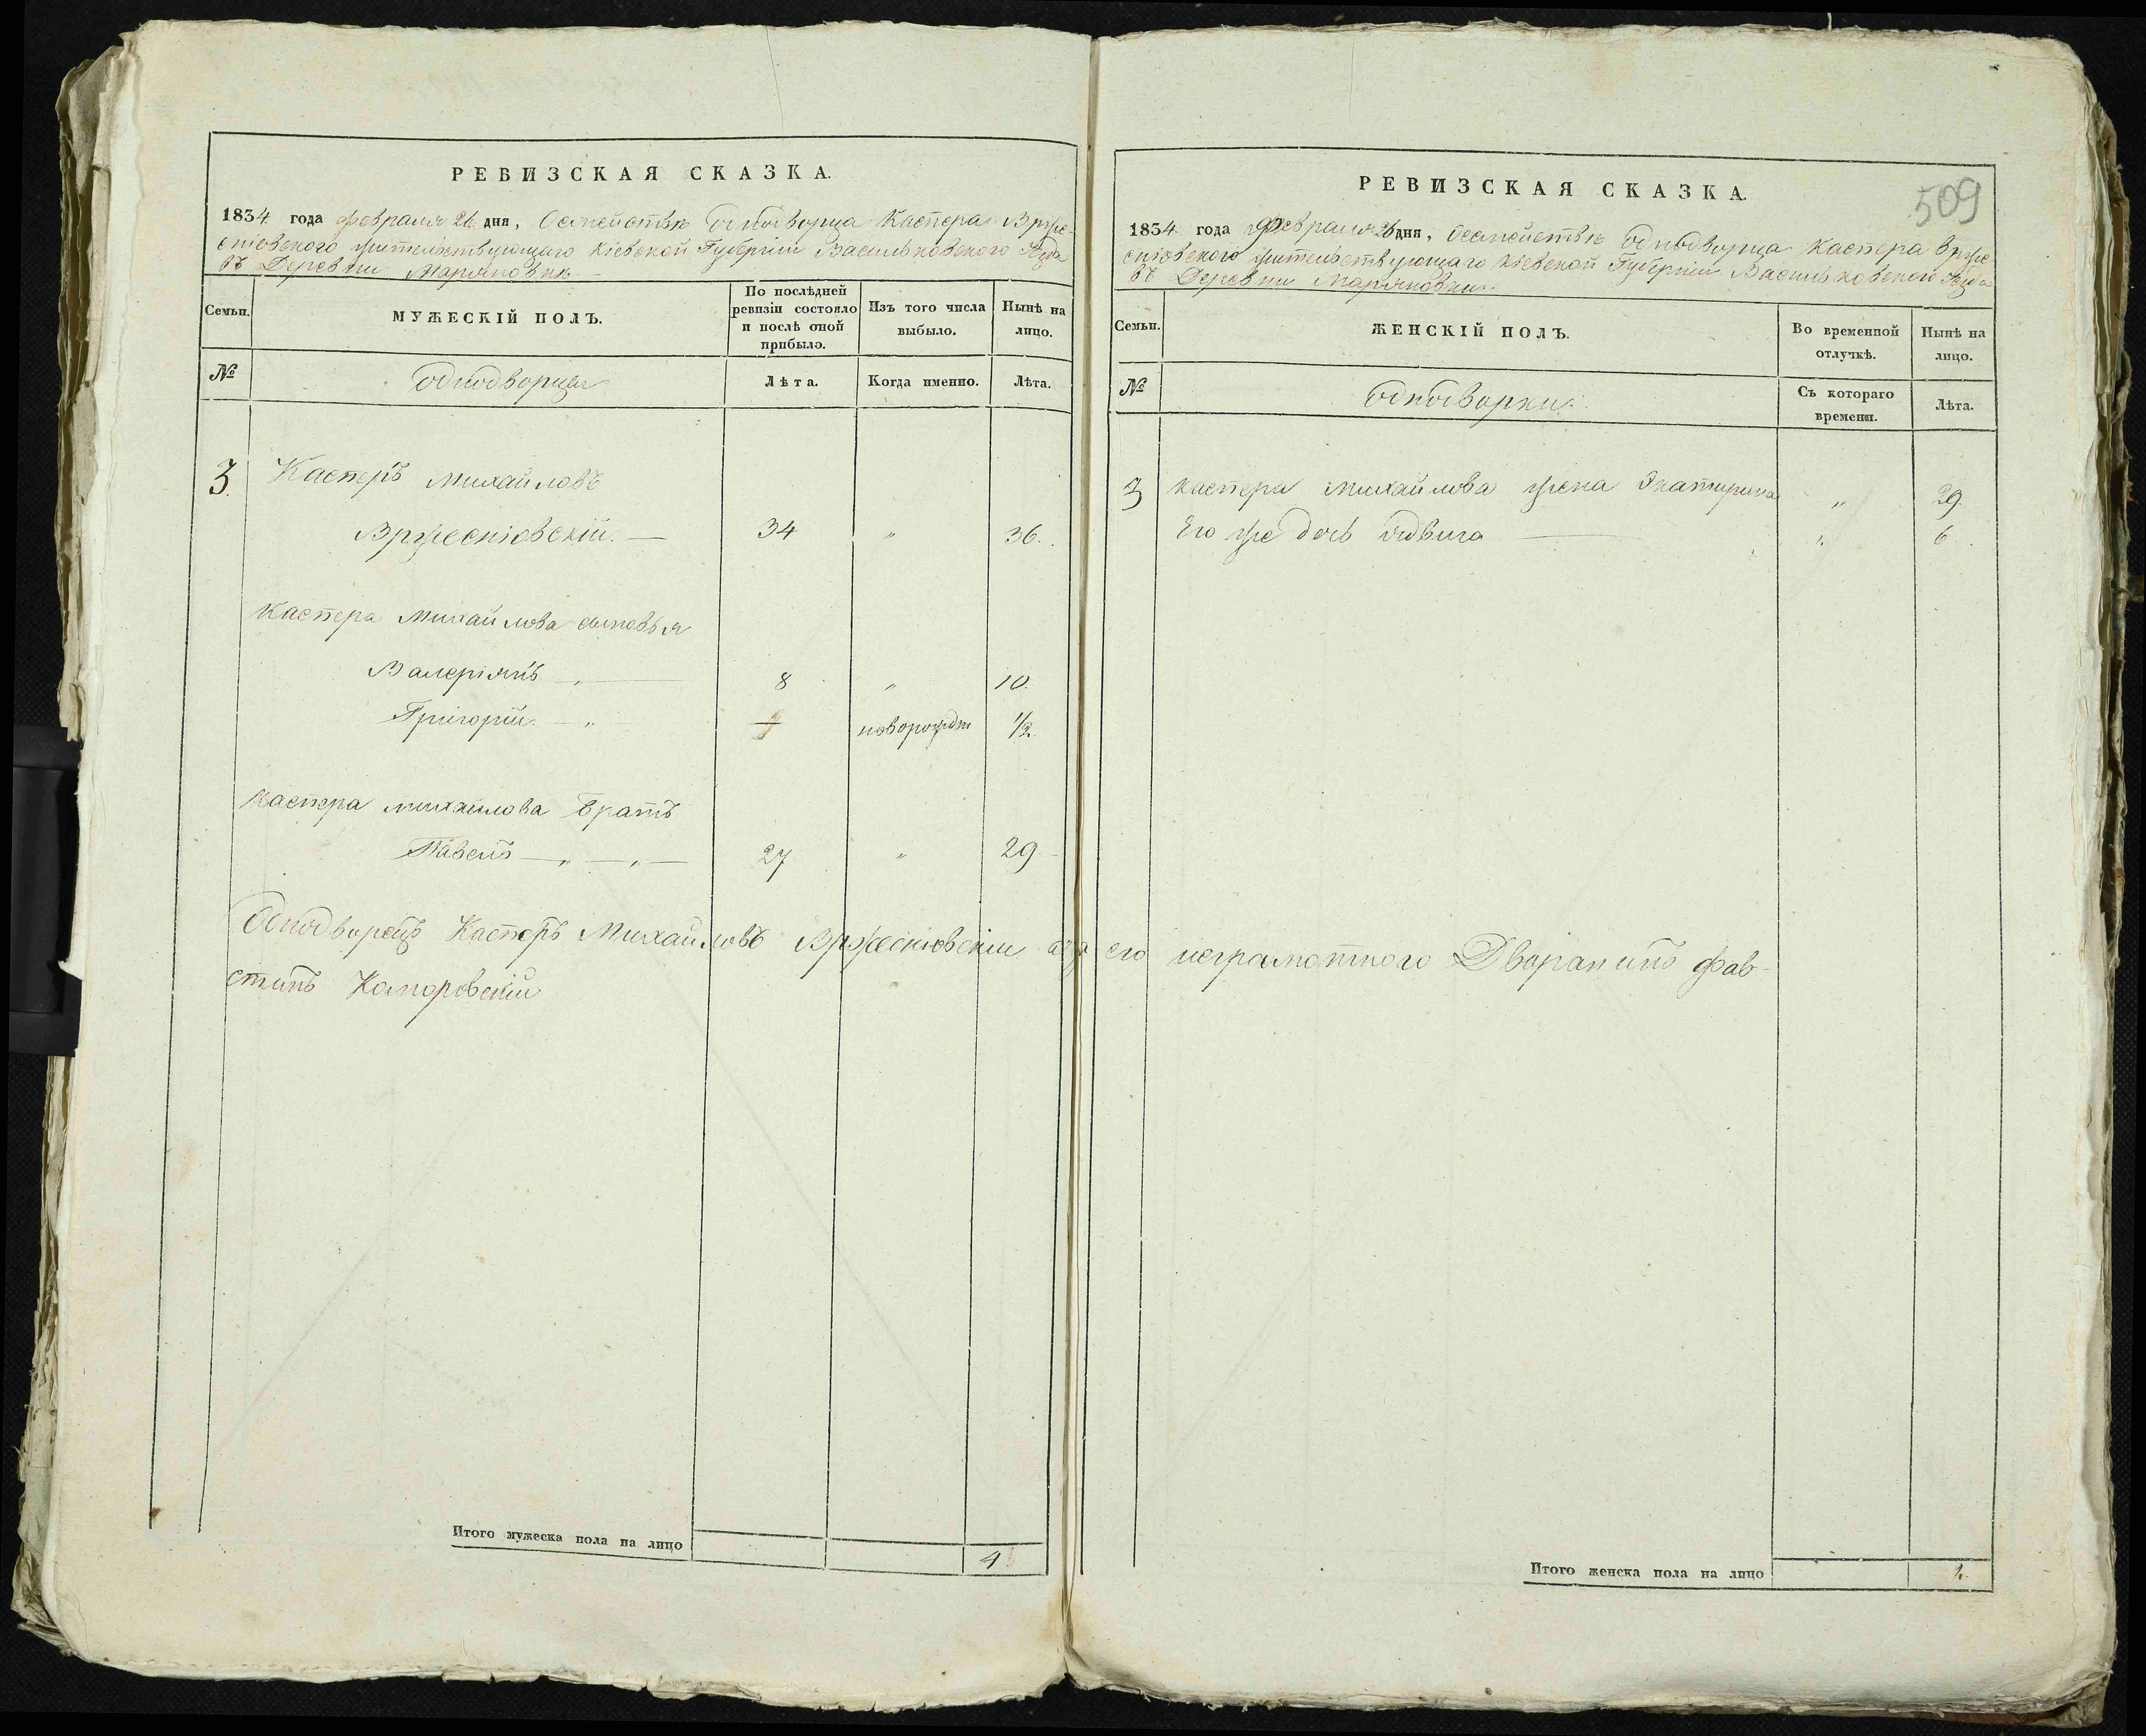 РЕВИЗСКАЯ СКАЗКА.
1834 года февраля 26 дня, О семействѣ Однодворца Каспера Врже-
сніовского жительствующаго Кіевской Губерніи Васильковского Уезда
въ Деревни Маряновкѣ
Семьи.
МУЖЕСКІЙ ПОЛЪ.
По послѣдней ревизіи состояло и послѣ оной прибыло.
Изъ того числа выбыло.
Нынѣ на лицо.
№
Однодворцы
Лѣта.
Когда именно.
Лѣта.
3. Касперъ Михайловъ
Вржесніовскій. — 34 „ 36.
Каспера Михайлова сыновья
Валеріянъ — 8 „ 10.
Григорій. — „ — новорожден 1/2.
Каспера Михайлова братъ
Павелъ — „ — „ — 27 „ 29
Однодворецъ Касперъ Михайловъ Вржесніовскій а за его неграмотного Дворянинъ Фав-
стинъ Коморовскій
Итого мужеска пола на лицо 4
РЕВИЗСКАЯ СКАЗКА.
509
1834 года февраля 26 дня, О семействѣ Однодворца КаспераВрже
сніовского жительствующаго Кіевской Губерніи Васильковского Уезда
въ Деревни Маряновки.
Семьи.
ЖЕНСКІЙ ПОЛЪ.
Во временной отлучкѣ.
Нынѣ на лицо.
№
Однодворки.
Съ котораго времени.
Лѣта.
3 Каспера Михайлова жена Экатирина „ 29.
Его же дочь Ядвига — „ 6.
Итого женска пола на лицо 2.